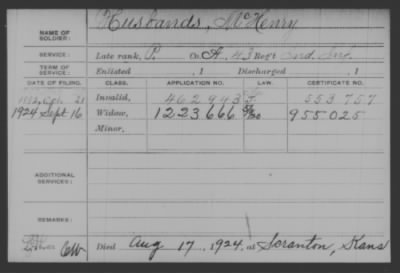 NAME OF SOLDIER: Husbands, McHenry
SERVICE: Late rank, P. Co. A, 43 Reg't Ind. Inf.
TERM OF SERVICE: Enlisted , 1 Discharged , 1
DATE OF FILING. CLASS. APPLICATION NO. LAW. CERTIFICATE NO.
21 Invalid, 462993 553757
1924 Sept 16 Widow, 1223666 5/1/20 955025
Minor,
ADDITIONAL SERVICES:
REMARKS:
Died Aug 17, 1924, at Scranton, Kans